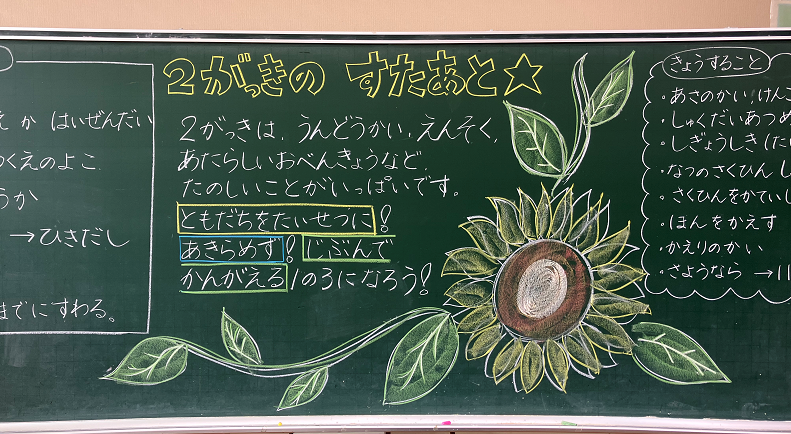 か はいぜんだい
くえのよこ
うか
→ひきだし
までにすわる。
2がっきの すたあと☆
2がっきは、うんどうかい、えんそく、
あたらしいおべんきょうなど、
たのしいことがいっぱいです。
ともだちをたいせつに!
あきらめず! じぶんで
かんがえる1の3になろう!
きょうすること
・あさのかい、けんこ
・しゅくだいあつめ
・しぎょうしき(たい
・なつのさくひん
・さくひんをかてい
・ほんをかえす
・かえりのかい
・さようなら →11